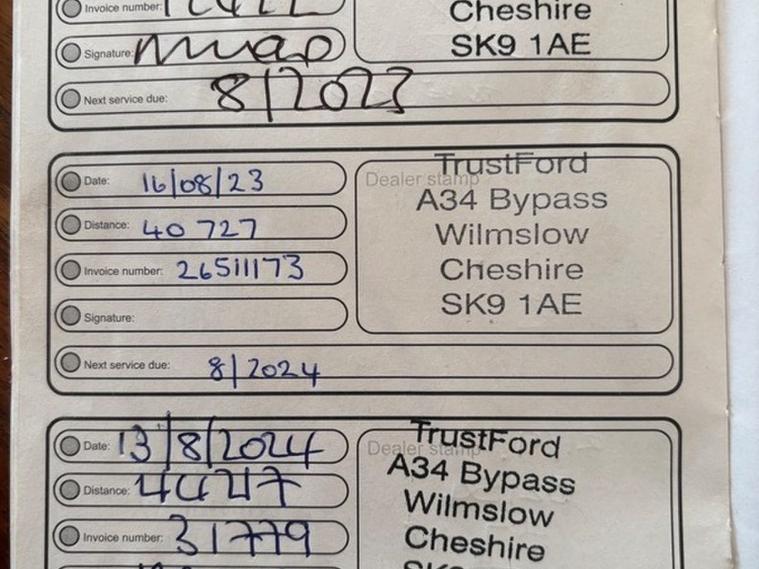 Invoice number:
Cheshire
Signature:
SK9 1AE
Next service due: 8/2023
Date: 16/08/23
Dealer stamp
TrustFord
Distance: 40 727
A34 Bypass
Wilmslow
Invoice number: 26511173
Cheshire
Signature:
SK9 1AE
Next service due: 8/2024
Date: 13/8/2024
Dealer stamp
TrustFord
Distance:
A34 Bypass
Wilmslow
Invoice number: 31779
Cheshire